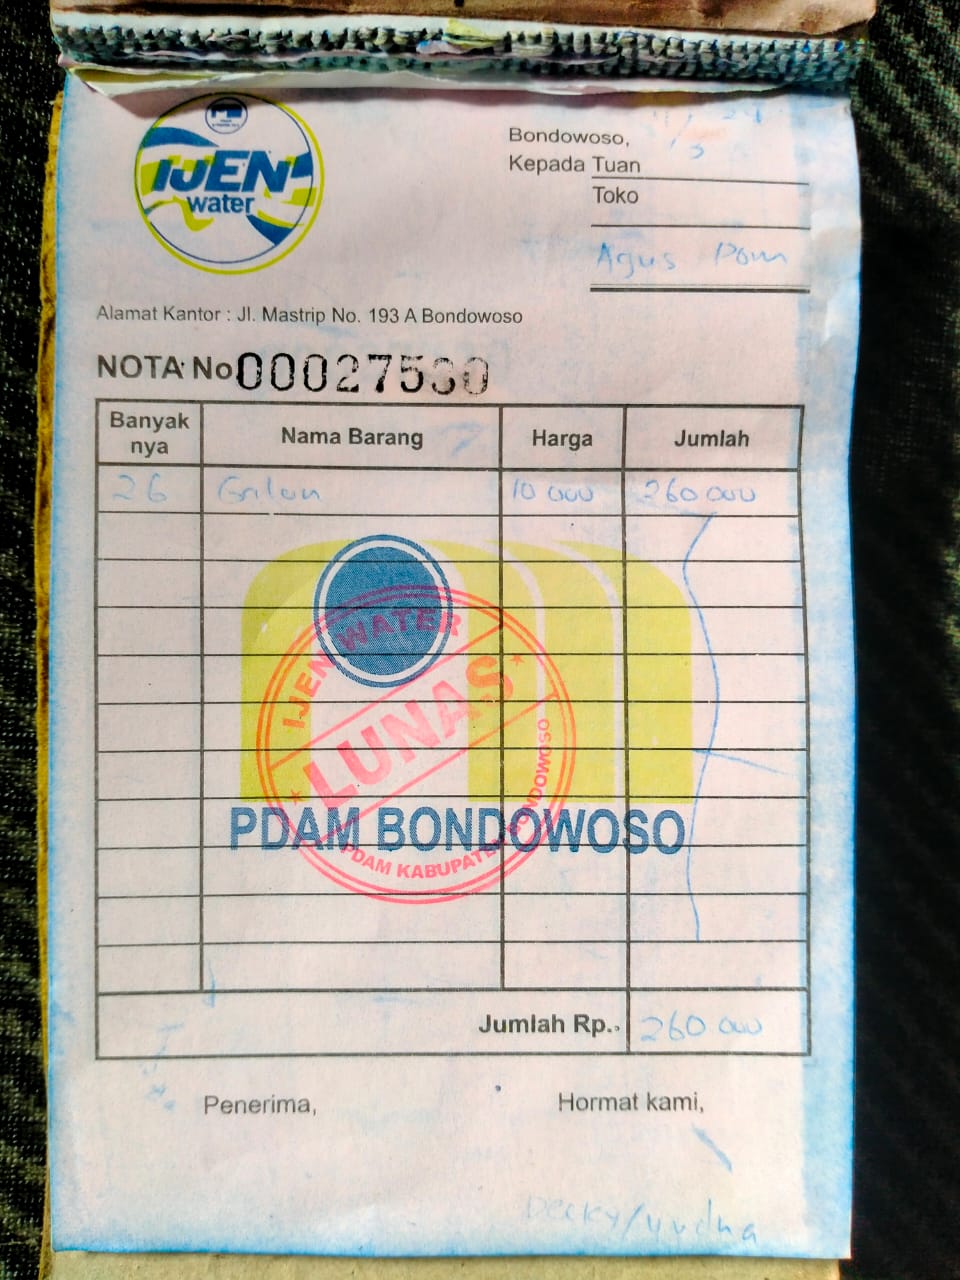 IJEN
water
Bondowoso,
Kepada Tuan
Toko
Agus Pom
Alamat Kantor : Jl. Mastrip No. 193 A Bondowoso
NOTA No 00027530
Banyak nya Nama Barang Harga Jumlah
26 Galon 10 000 260 000
IJEN WATER
LUNAS
PDAM KABUPATEN BONDOWOSO
PDAM BONDOWOSO
Jumlah Rp. 260 000
Penerima, Hormat kami,